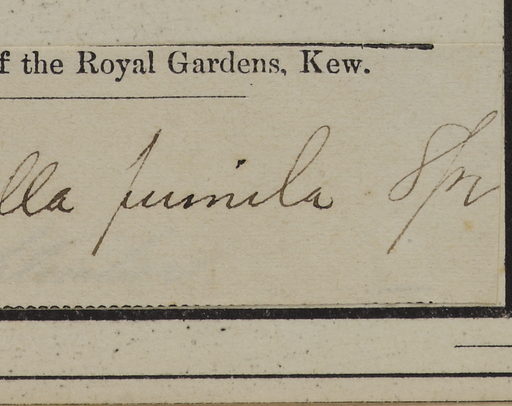 f the Royal Gardens, Kew.
lla pumila Spr